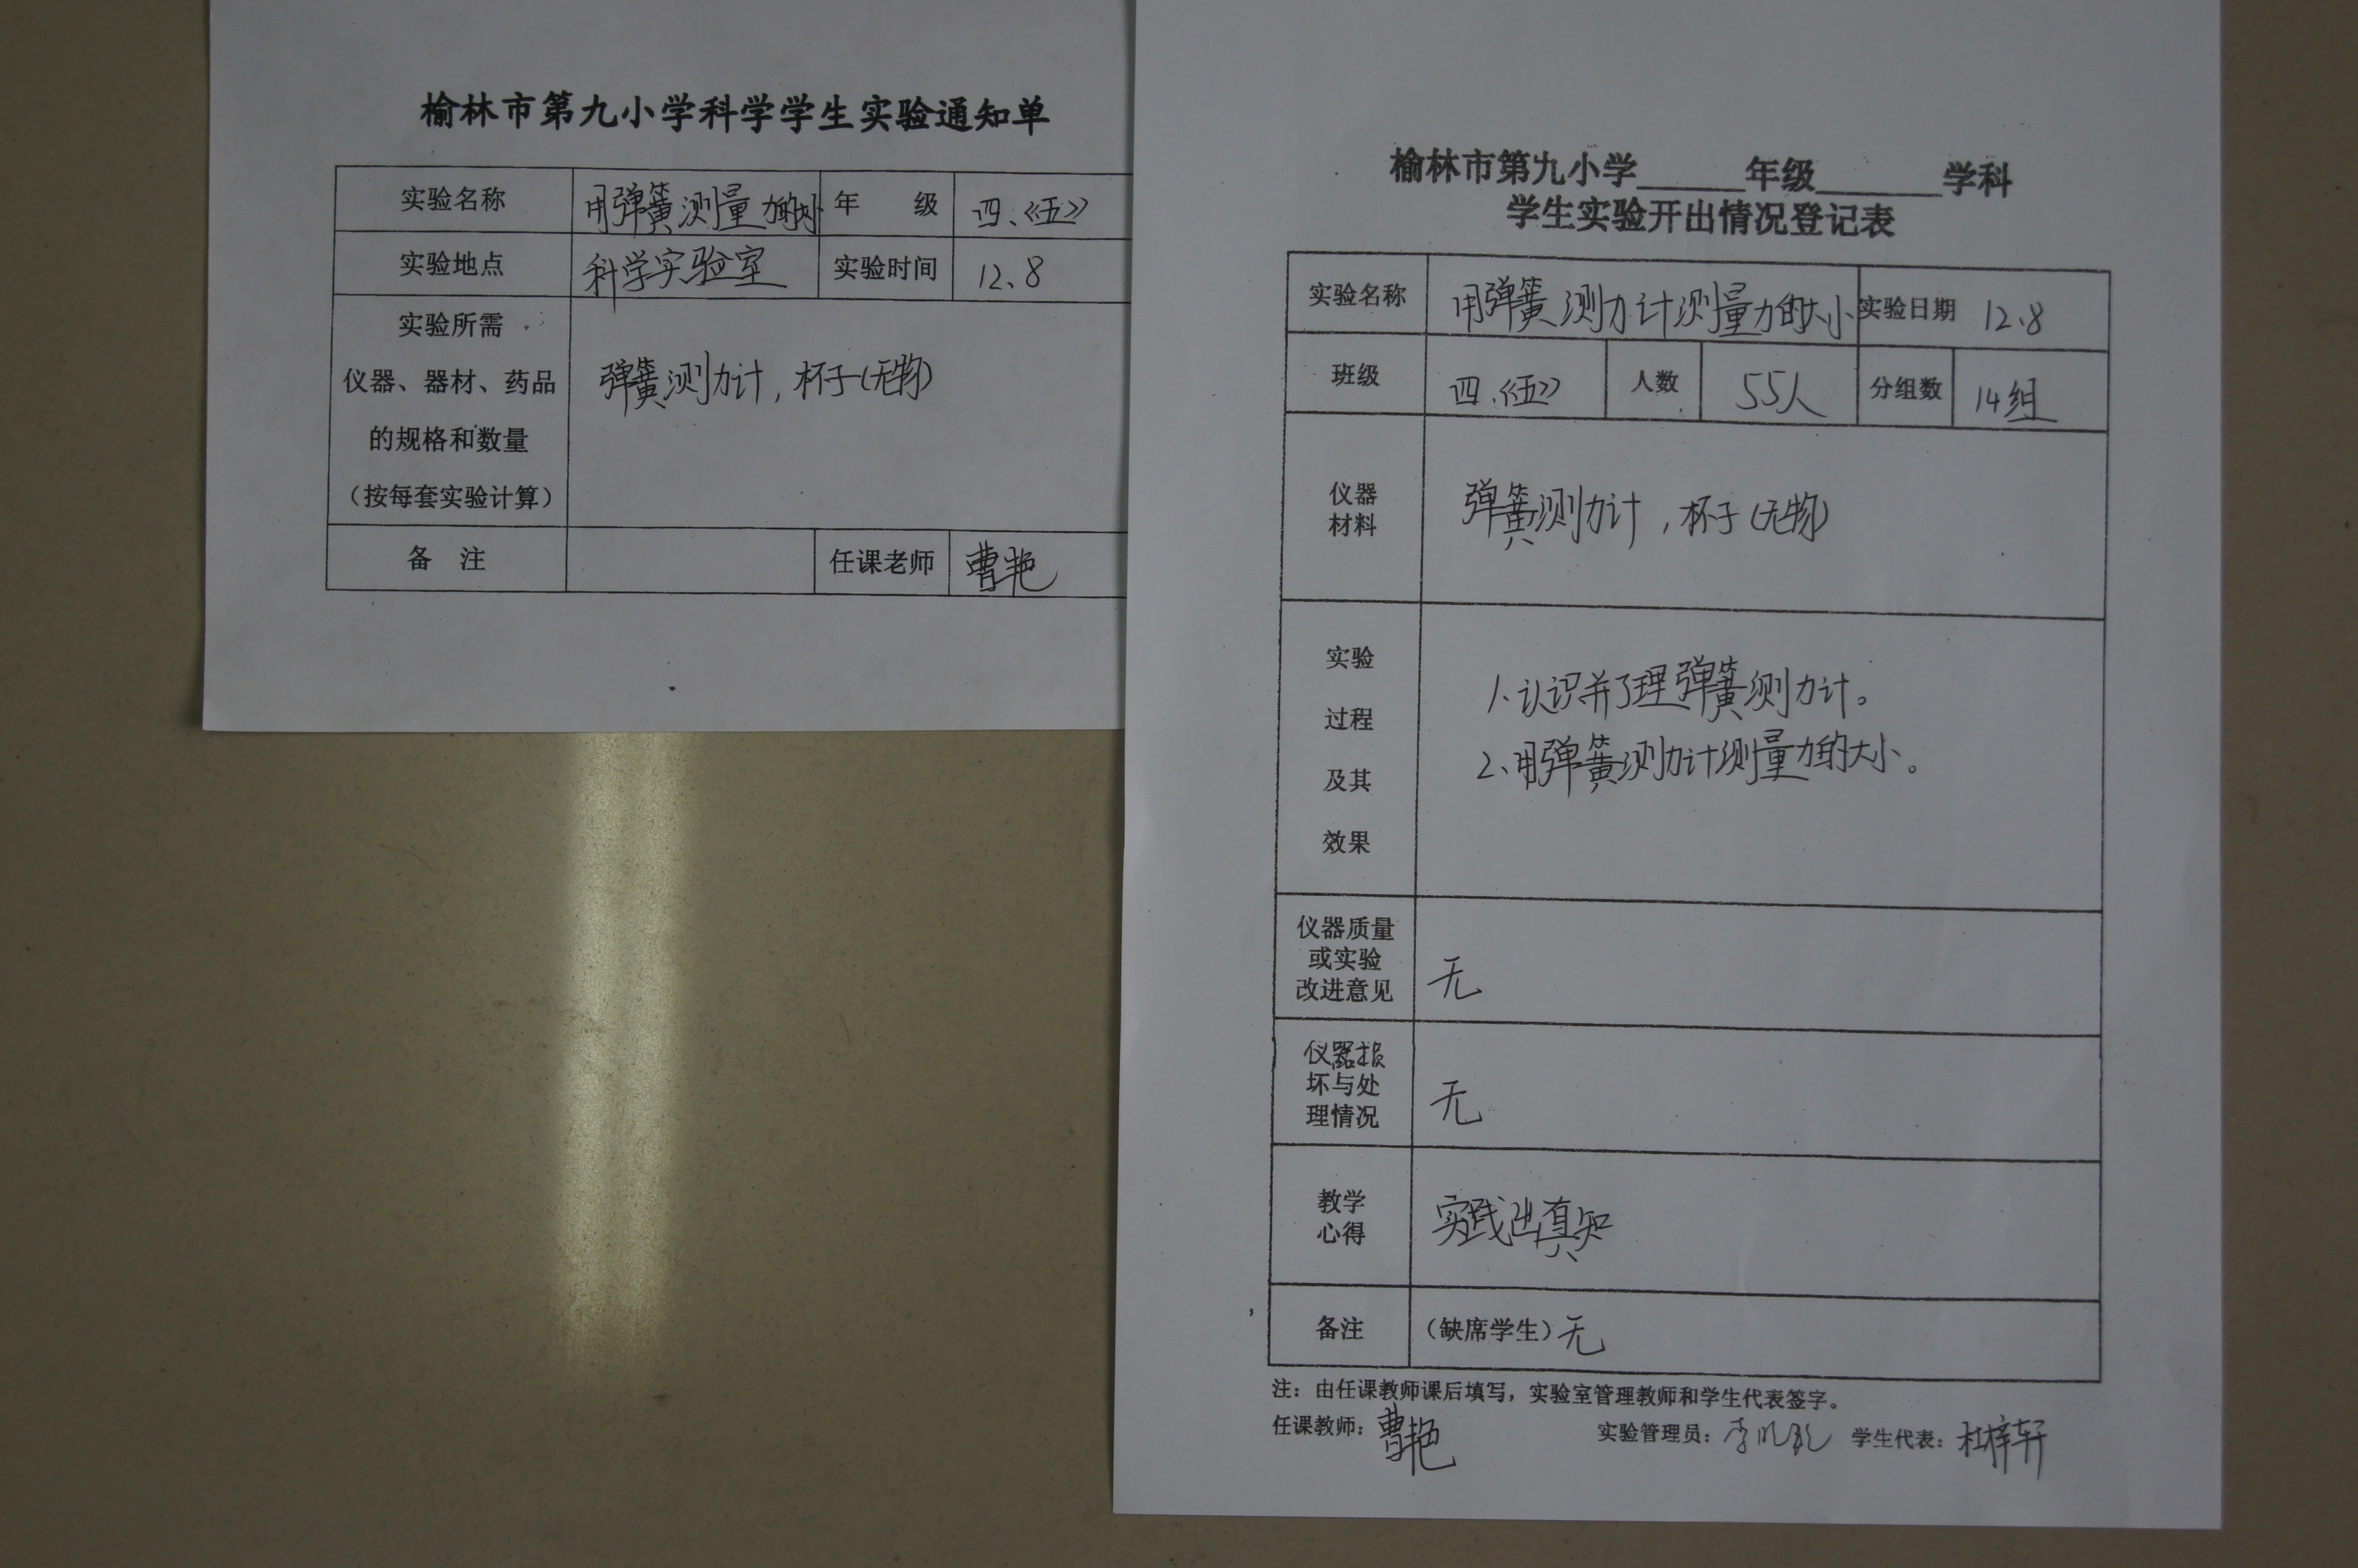 榆林市第九小学科学学生实验通知单
实验名称 用弹簧测量力的大小 年 级 四、《五》
实验地点 科学实验室 实验时间 12、8
实验所需
仪器、器材、药品
的规格和数量
(按每套实验计算)
弹簧测力计，杯子(无物)
备 注 任课老师 曹艳
榆林市第九小学______年级_______学科
学生实验开出情况登记表
实验名称 用弹簧测力计测量力的大小 实验日期 12、8
班级 四、《五》 人数 55人 分组数 14组
仪器
材料
弹簧测力计，杯子(无物)
实验
过程
及其
效果
1、认识并了理弹簧测力计。
2、用弹簧测力计测量力的大小。
仪器质量
或实验
改进意见
无
仪器损
坏与处
理情况
无
教学
心得
实践出真知
备注 (缺席学生) 无
注：由任课教师课后填写，实验室管理教师和学生代表签字。
任课教师：曹艳 实验管理员： 学生代表：杜梓轩